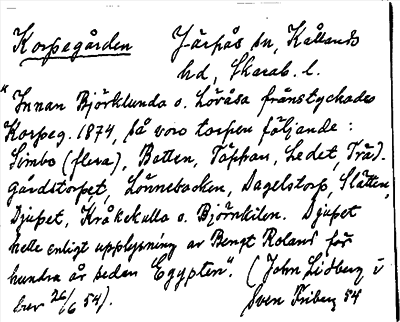 Korpegården Järpås sn, Kållands
hd, Skarab. l.
"Innan Björklunda o. Lövåsa frånstyckades
Korpeg. 1874, så voro torpen följande:
Simbo (flera), Botten, Täppan, Ledet, Träd-
gårdstorpet, Lönnebacken, Dagelstorp, Slätten,
Djupet, Kråkekulla o. Björnkilen. Djupet
hette enligt upplysning av Bengt Roland för
hundra år sedan Egypten". (John Lidberg i
brev 26/6 54). Sven Friberg 54